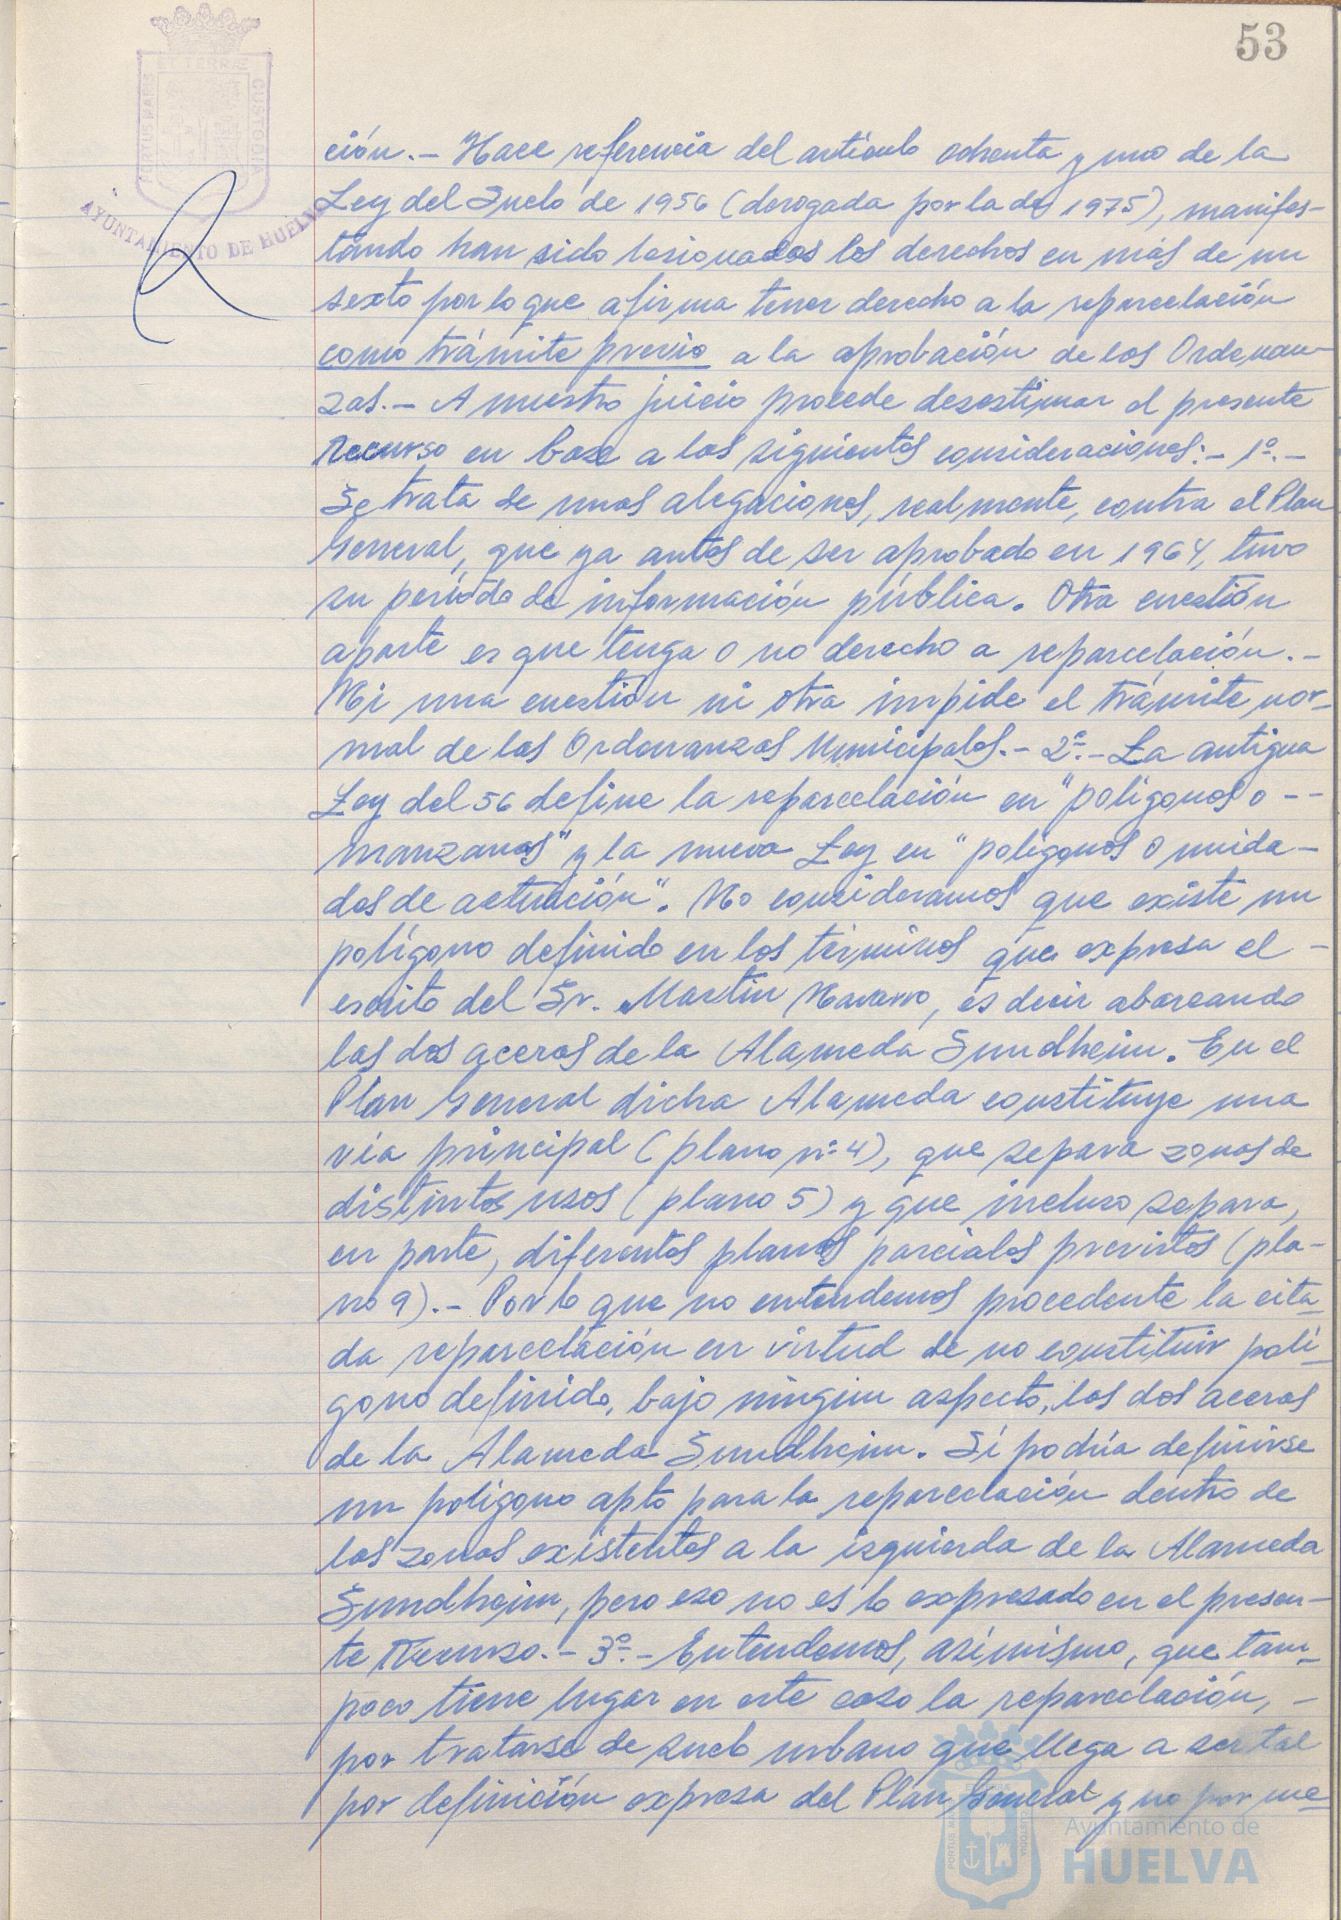 53
ET TERRÆ
PORTUS MARIS
CUSTODIA
AYUNTAMIENTO DE HUELVA
ción.- Hace referencia del artículo ochenta y uno de la
Ley del Suelo de 1956 (derogada por la de 1975), manifes-
tando han sido lesionados los derechos en más de un
sexto por lo que afirma tener derecho a la reparcelación
como trámite previo a la aprobación de las Ordenan-
zas.- A nuestro juicio procede desestimar el presente
Recurso en base a las siguientes consideraciones:- 1º.-
Se trata de unas alegaciones, realmente, contra el Plan
General, que ya antes de ser aprobado en 1964, tuvo
su período de información pública. Otra cuestión
aparte es que tenga o no derecho a reparcelación.-
Ni una cuestión ni otra impide el trámite nor-
mal de las Ordenanzas Municipales.- 2º.- La antigua
Ley del 56 define la reparcelación en "polígonos o --
manzanas" y la nueva Ley en "polígonos o unida-
des de actuación". No consideramos que existe un
polígono definido en los términos que expresa el -
escrito del Sr. Martín Navarro, es decir abarcando
las dos aceras de la Alameda Sundheim. En el
Plan General dicha Alameda constituye una
vía principal (plano nº 4), que separa zonas de
distintos usos (plano 5) y que incluso separa,
en parte, diferentes planes parciales previstos (pla-
no 9).- Por lo que no entendemos procedente la cita-
da reparcelación en virtud de no constituir polí-
gono definido, bajo ningún aspecto, las dos aceras
de la Alameda Sundheim. Sí podría definirse
un polígono apto para la reparcelación dentro de
las zonas existentes a la izquierda de la Alameda
Sundheim, pero eso no es lo expresado en el presen-
te Recurso.- 3º.- Entendemos, asimismo, que tam-
poco tiene lugar en este caso la reparcelación, -
por tratarse de suelo urbano que llega a ser tal
por definición expresa del Plan General y no por me-
Ayuntamiento de
HUELVA